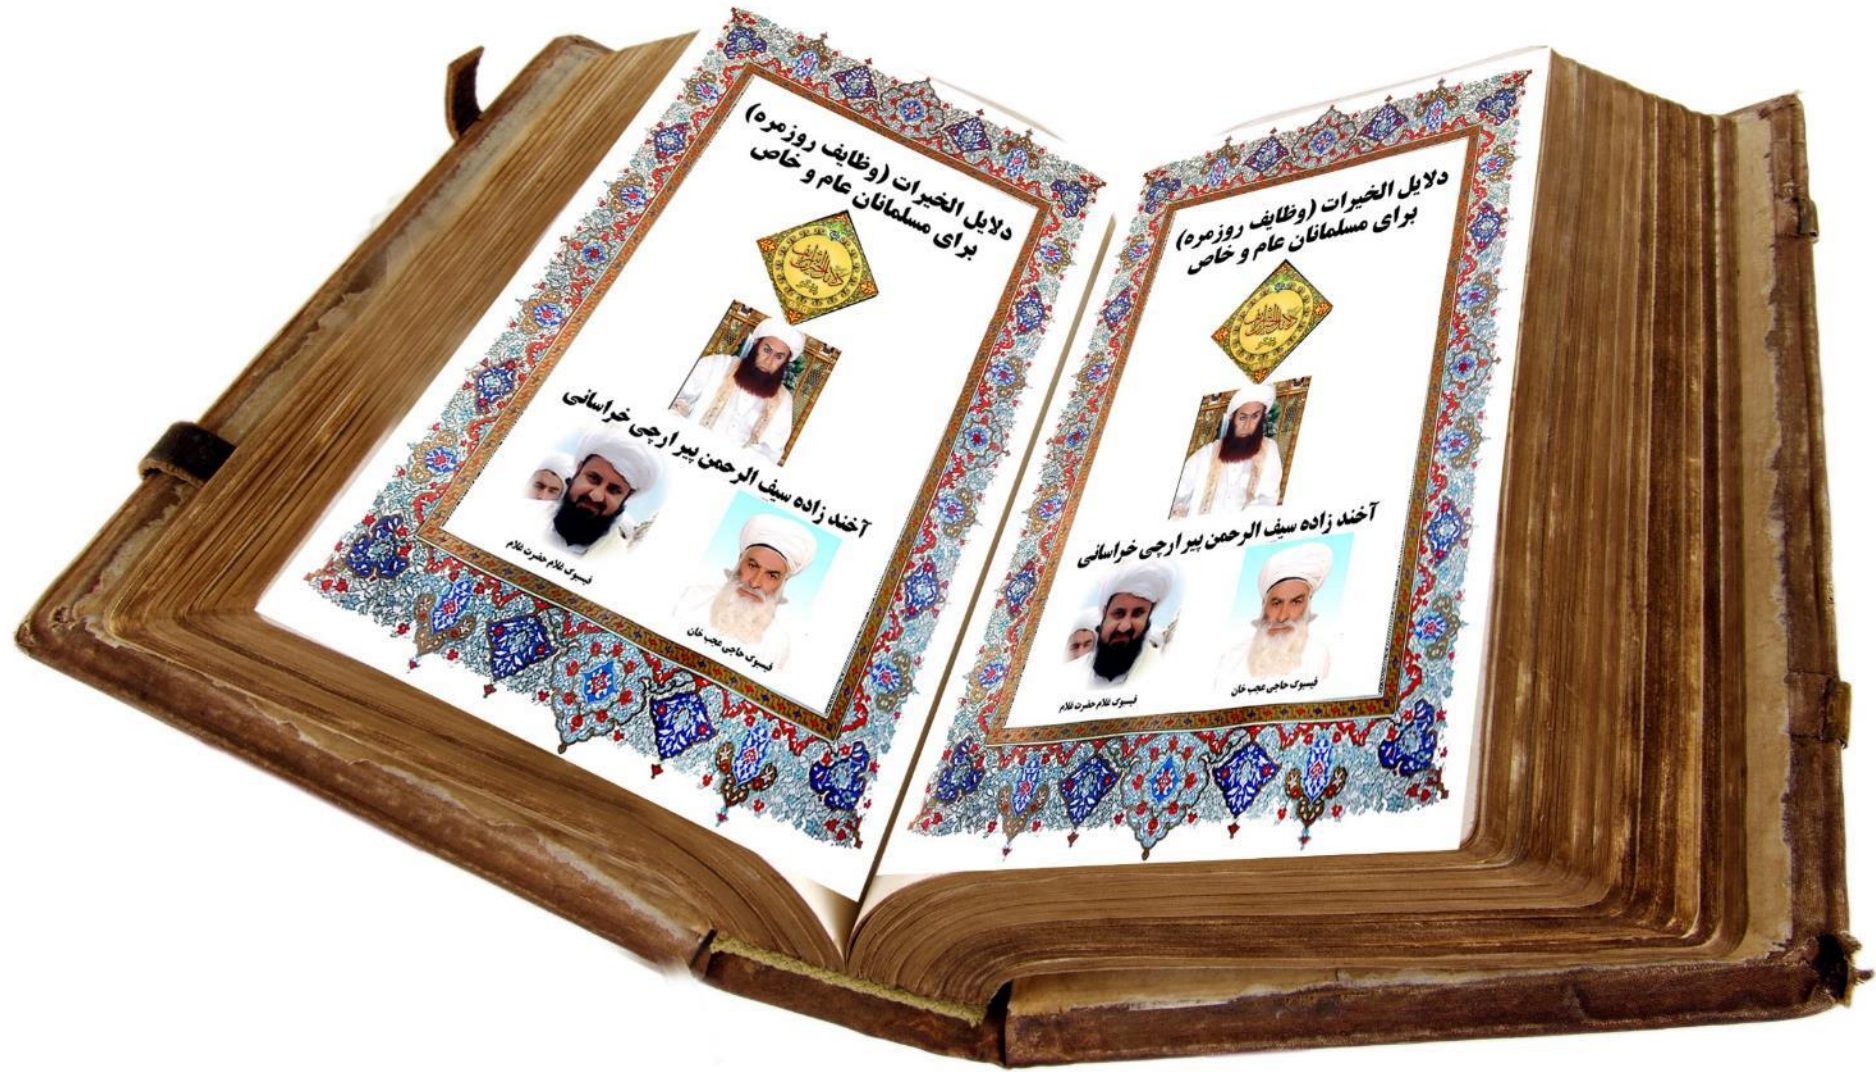 دلایل الخیرات (وظایف روزمره)
برای مسلمانان عام و خاص
آخند زاده سیف الرحمن پیر ارچی خراسانی
فیسبوک غلام حضرت غلام
فیسبوک حاجی عجب خان
دلایل الخیرات (وظایف روزمره)
برای مسلمانان عام و خاص
آخند زاده سیف الرحمن پیر ارچی خراسانی
فیسبوک غلام حضرت غلام
فیسبوک حاجی عجب خان